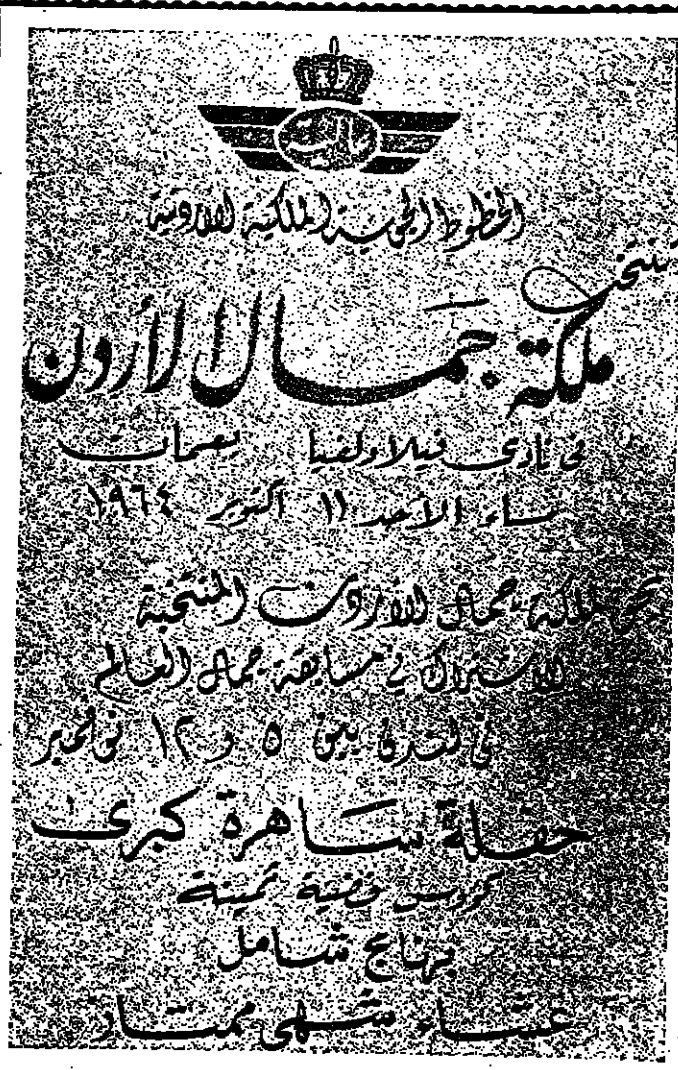 عالية
الخطوط الجوية الملكية الأردنية
تنتخب
ملكة جمال الأردن
في نادي فيلادلفيا بعمان
مساء الأحد ١١ اكتوبر ١٩٦٤
لملكة جمال الأردن المنتخبة
الاشتراك في مسابقة جمال العالم
في لندن بين ٥ و ١٢ نوفمبر
حفلة ساهرة كبرى
كؤوس فضية ثمينة
برنامج شامل
عشاء شهي ممتاز